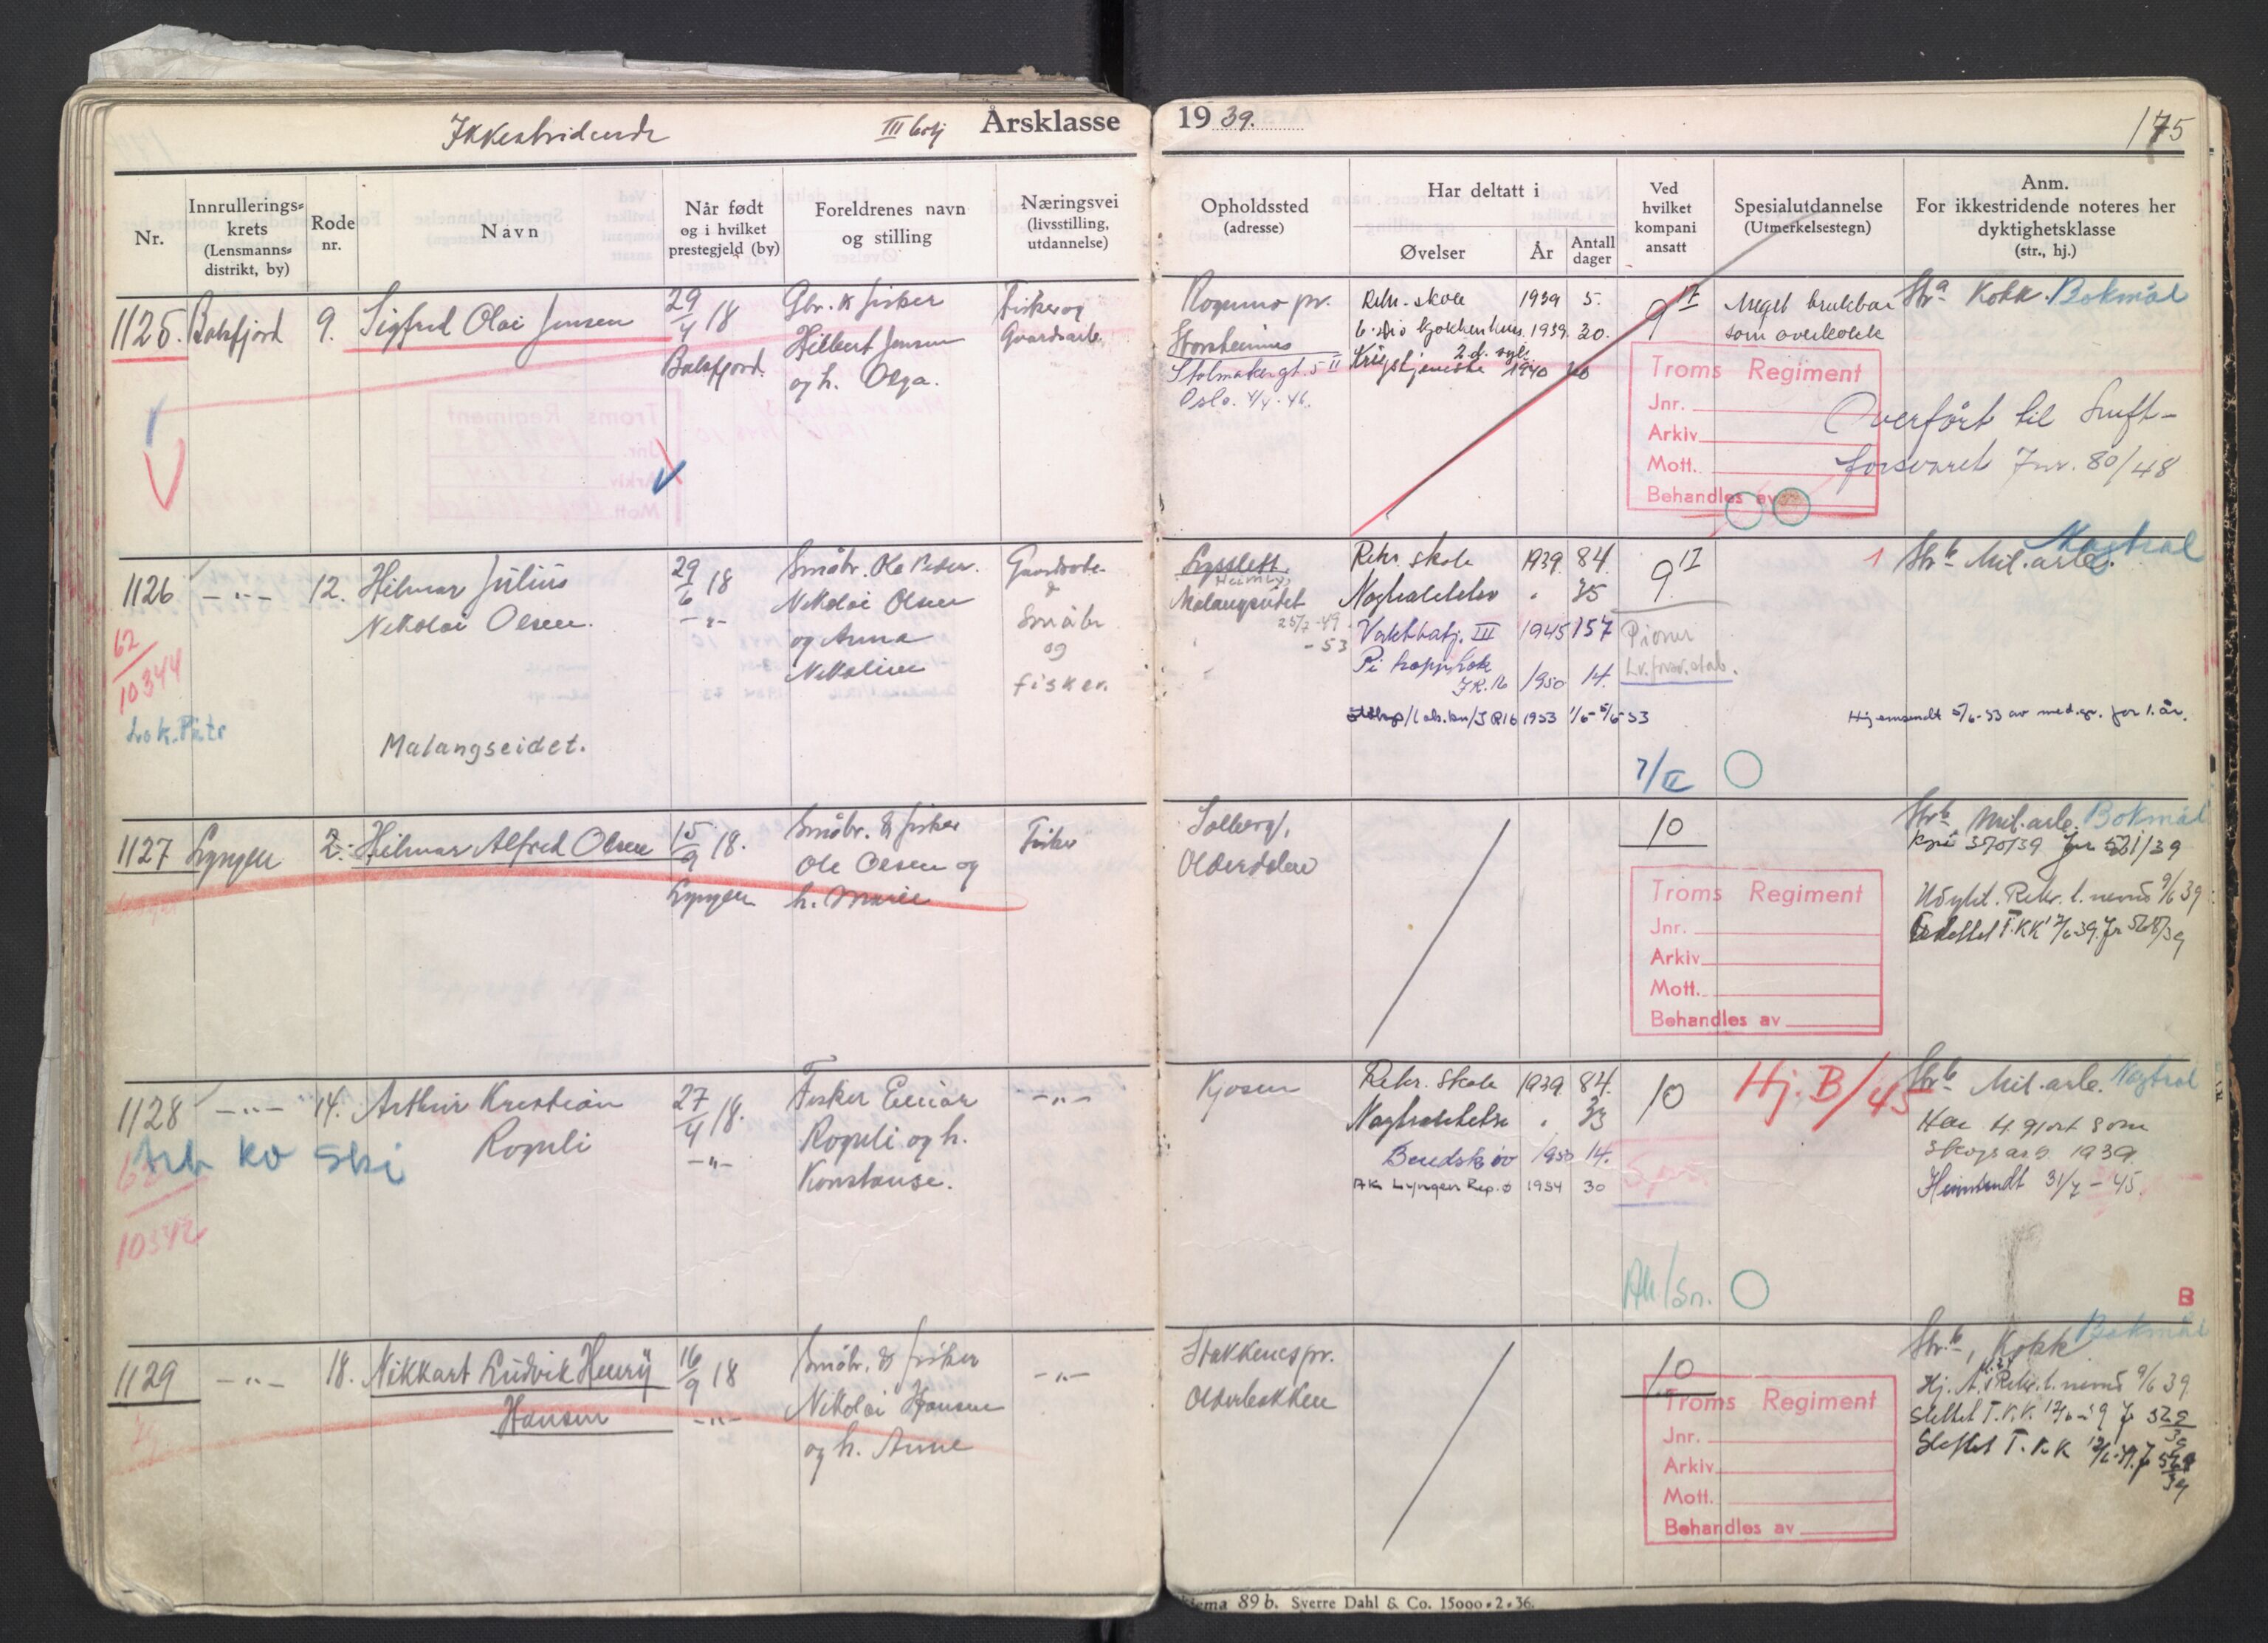 Ikkestridende III batj Årsklasse 1939.
175
Nr.
Innrullerings-
krets
(Lensmanns-
distrikt, by)
Rode
nr.
Navn
Når født
og i hvilket
prestegjeld (by)
Foreldrenes navn
og stilling
Næringsvei
(livsstilling,
utdannelse)
Opholdssted
(adresse)
Har deltatt i
Øvelser
År
Antall
dager
Ved
hvilket
kompani
ansatt
Spesialutdannelse
(Utmerkelsestegn)
Anm.
For ikkestridende noteres her
dyktighetsklasse
(str., hj.)
1125. Balsfjord 9. Sigfred Olai Jensen
29/4 18
Balsfjord.
Gbr. & fisker
Hilbert Jensen
og h. Olga.
Fisker og
Gaardsarb.
pr.
Storsteinnes
Stolmakergt. 5 II
Oslo. 4/4-46.
Rekr. skole 1939 5.
1939. 30.
Krigstjeneste 1940
9 II
Meget brukbar
som overkokk
Str a Kokk. Bokmål
Troms Regiment
Jnr.
Arkiv
Mott.
Behandles av
Overført til Luft-
forsvaret Jnr. 80/48
1126 -"- 12. Hilmar Julius
Nikolai Olsen.
29/6 18
-"-
Småbr. Ole Peder
Nikolai Olsen
og Anna
Nikoline
Gaardsarb.
&
Småbr
og
fisker.
62/10344
Malangseidet.
Heimly,
Malangseidet
25/7-49
-53
Rekr. skole 1939. 84.
" 35
Vaktbatj. III 1945 157
I.R.16 1950 14.
1953 1/6-5/6-53
9 II
Pioner
7/II
1 Str b Mil. arb.
Hjemsendt 5/6-53 av med.gr. for 1. år.
1127 Lyngen 2. Hilmar Alfred Olsen
15/9 18.
Lyngen
Småbr. & fisker
Ole Olsen og
h. Marie
Fisker
Solberg,
Olderdalen
10
Troms Regiment
Jnr.
Arkiv
Mott.
Behandles av
Str b Mil. arb. Bokmål
Udykt. Rekr. l. nemd 9/6 39
1128 -"- 14. Arthur Kristian
Rogneli
27/4 18.
-"-
Fisker Einar
Rogneli og h.
Konstanse.
-"-
Arb ko ski
62/10342
Kjosen
Rekr. skole 1939. 84.
" 33
1950 14.
AK Lyngen Rep.ø 1954 30
10
Hj. B/45
Str b Mil. arb.
skogsarb. 1939.
Heimsendt 31/7-45.
B
1129 -"- 18. Nikkart Ludvik Henry
Hansen
16/9 18
-"-
Småbr. & fisker
Nikolai Hansen
og h. Anne
-"-
Stakkenes pr.
Olderbakken
10
Troms Regiment
Jnr.
Arkiv
Mott.
Behandles av
Str. b, Kokk Bokmål
Hj. A. Rekr. l. nemd 9/6 39
Slettet T.K.K. 12/6-39 J 529/39
Slettet T.K.K 12/6-39. J 529/39
89 b. Sverre Dahl & Co. 15000-2-36.